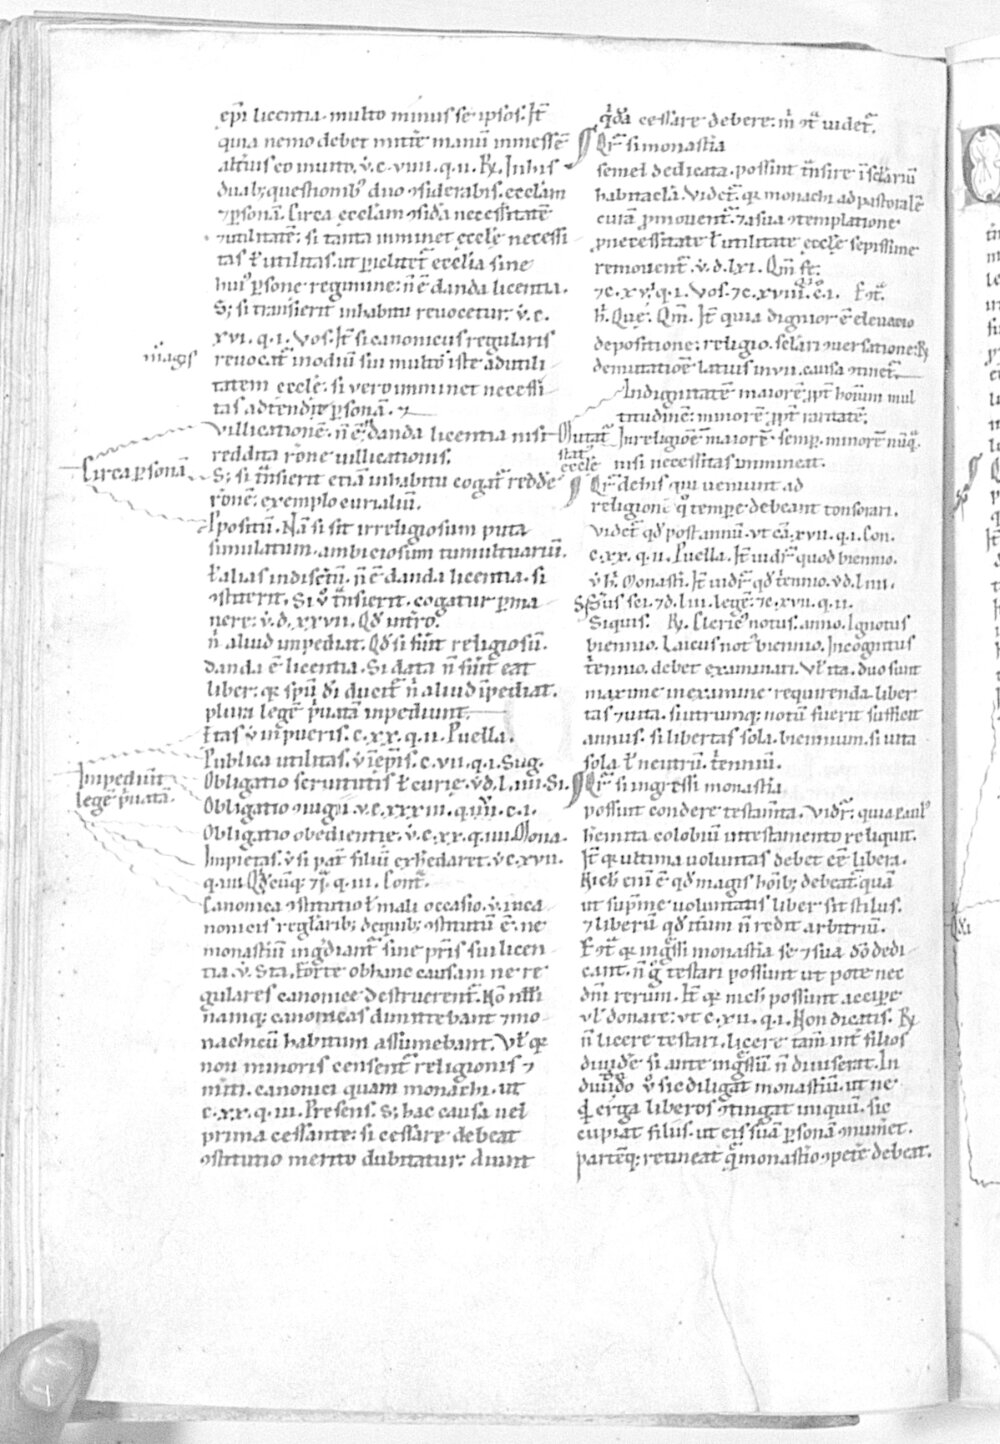 ep̄i licentia. multo minus se ipsos. It̄
quia nemo debet mitt̄e manū in messē
alt̄ius eo inuito. v̄. c. viiii. q. ii. R̷. In his
duab; questionib; duo ɔsiderabis. ecclām
⁊ ꝑsonā. Circa ecclām ɔsida necessitatē
⁊ utilitatē: si tanta imminet eccl̄e necessi
tas ł utilitas. ut ꝑiclitet᷑ ecclīa sine
hui᷒ ꝑsone regimine: n̄ ē danda licentia.
S; si transierit inhabitu reuocetur. v̄. c.
xvi. q. i. Vos. It̄ si canonicus regularis
reuocat᷑ in modū sui multo iste ad utili
tatem eccl̄e. si vero imminet necessi
tas
villicationē. n̄ ē danda licentia nisi
reddita rōne uillicationis.
S; si t̄nsierit etiā inhabitu cogat᷑ redde
rōnē: exemplo
ꝓpositū. Nā si sit irreligiosum puta
simulatum. ambiciosum tumultuariū.
ł alias indiscr̄tū. n̄ ē danda licentia. si
ɔstiterit. Si v̊ t̄nsierit. cogatur ꝑma
nere: v̄. d. xxvii. Qd̄
n̄ aliud impediat. Qd̄ si sūt religiosū.
danda ē licentia. Si data n̄ eat
liber: q̄ sp̄ū d̄i ducit᷑ n̄ aliud īpediat.
plura legē p̄uatā inpediunt.
Etas v̄ in pueris. c. xx. q. ii. Puella.
Publica utilitas. v̄ ī ep̄is. c. vii. q. i. Sug.
Obligatio seruitutis ł curie. v̄. d. l. iiii. Si.
Obligatio ɔiugii. v̄. c. xxxiii. q. c. i.
Obligatio obedientie. v̄. c. xx. q. iiii. Mona.
Impietas. v̄ si pat̄ filiū exh̄edaret. v̄. c. xvii.
q. iiii. Qd̄cūq; q. iii. Cont̄.
Canonica ɔstitutio ł mali occasio. v̄. in ca
nonicis regl̄arib; de quib; ɔstitutū ē. ne
monastiū inḡdiant᷑ sine p̄ris sui licen
tia. v̄. Sta. Forte ob hanc causam ne re
gulares canonice destruerent᷑. Nō nlli
namq; canonicas dimittebant ⁊ mo
nachicū habitum assumebant. Vł q̄
non minoris censent᷑ religionis ⁊
miti. canonici quam monachi. ut
c. xx. q. iii. Presens. S; hac causa uel
prima cessante: si cessare debeat
ɔstitutio merito dubitatur: diunt
magis
Circa ꝑsonā
Impediūt
legē p̄uatā.
Mutat᷑
stat᷒
eccl̄e
q̄dā cessare debere: m̄ ɔt᷑ videt᷑.
Qr̄ si monastīa
semel dedicata. possint t̄nsire ī sc̄lariū
habitacl̄a. Videt᷑. q̄ monachi ad pastoralē
curā ꝓmouent᷑. ⁊ a sua ɔtemplatione
ꝓ necessitate ł utilitate eccl̄e sepissime
remouent᷑. v̄. d. lxi. Qm̄
⁊ c. xvi. q. i. Vos. ⁊ c. xviii. q̄. i. E ɔt᷑.
h̄. Que. Qm̄. It̄ quia dignior ē eleuatio
depositione: religio. sc̄lari ɔuersatione: R̷
de mutatiōe latius in vii. causa ɔtinet᷑.
In dignitatē maiorē ꝓpt̄ honū mul
titudinē: minorē ꝓpt̄ raritatē.
In religiōē maiorē semꝑ. minorē nūq̄.
nisi necessitas immineat.
Qr̄ de his qui ueniunt ad
religionē q᷒ tempore debeant tonsorari.
Videt᷑ qd̄ post annū. ut cā. xvii. q. i. Con.
c. xx. q. ii. Puella. It̄ uidr̄ quod biennio.
v̄ h̄. Monasti. It̄ uidr̄ qd̄ t̄ennio. v̄ d. liii.
⁊ d. liii. legē: ⁊ c. xvii. q. ii.
Siquis. R̷. Cleric᷒ notus. anno. Ignotus
biennio. Laicus not᷒ biennio. Incognitus
t̄ennio. debet examinari. Vł ita. duo sunt
maxime in examine requirenda liber
tas ⁊ uita. si utrumq; notū fuerit sufficit
annus. si libertas sola. biennium. si uita
sola ł neutrū. t̄enniū.
Qr̄ si ingressi monastīa
possint condere testam̄ta. Vidr̄. quia paul᷒
h̄emita colobiū in testamento reliquit.
It̄ q̄ ultima uoluntas debet eē libera.
Nichil enī ē qd̄ magis hoīb; debeat᷑ quā
ut sup̄me uoluntatis liber sit stilus.
⁊ liberū qd̄ it̄um n̄ redit arbitriū.
E ɔt᷑ q̄ inḡssi monastīa se ⁊ sua d̄o dedi
cant. n̄ g̊ testari possunt ut pote nec
dn̄i rerum. It̄ q̄ nich̄ possunt accipe
vł donare: ut c. xii. q. i. Non dicatis. R̷
n̄ licere testari. licere tam̄ int̄ filios
diuid̄e si ante inḡssū n̄ diuiserat. In
diuidēdo v̊ sic diligat monastiū. ut ne
erga liberos ɔtingat iniquū. sic
cupiat filiis. ut eis suā ꝑsonā ɔnumēt.
partēq; retineat q̄ monastīo ɔpet̄e debeat.